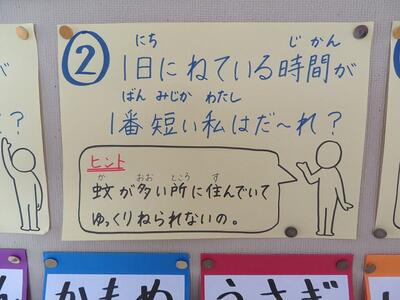 ②
にち じかん
1日にねている時間が
ばん みじか わたし
1番短い私はだ〜れ?
ヒント
か おお ところ す
蚊が多い所に住んでいて
ゆっくりねられないの。
が
?
かもめ
うさぎ